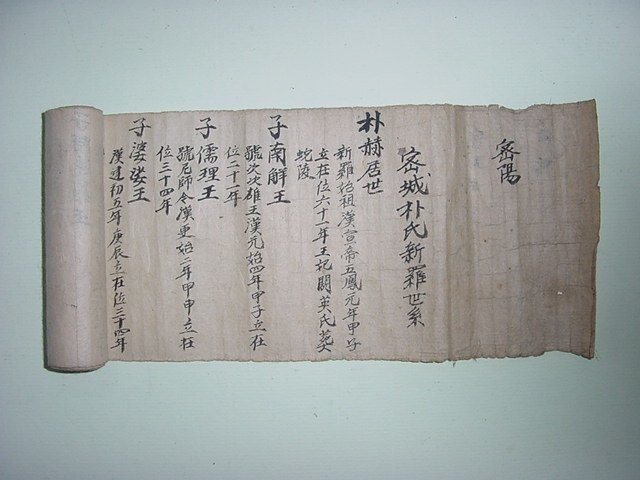 密陽
密城朴氏新羅世系
朴赫居世
新羅始祖漢宣帝五鳳元年甲子
立在位六十一年王妃閼英氏葬
蛇陵
子南解王
號次次雄王漢元始四年甲子立在
位二十一年
子儒理王
號尼師令漢更始二年甲申立在
位三十四年
子婆娑王
漢建初五年庚辰立在位三十四年